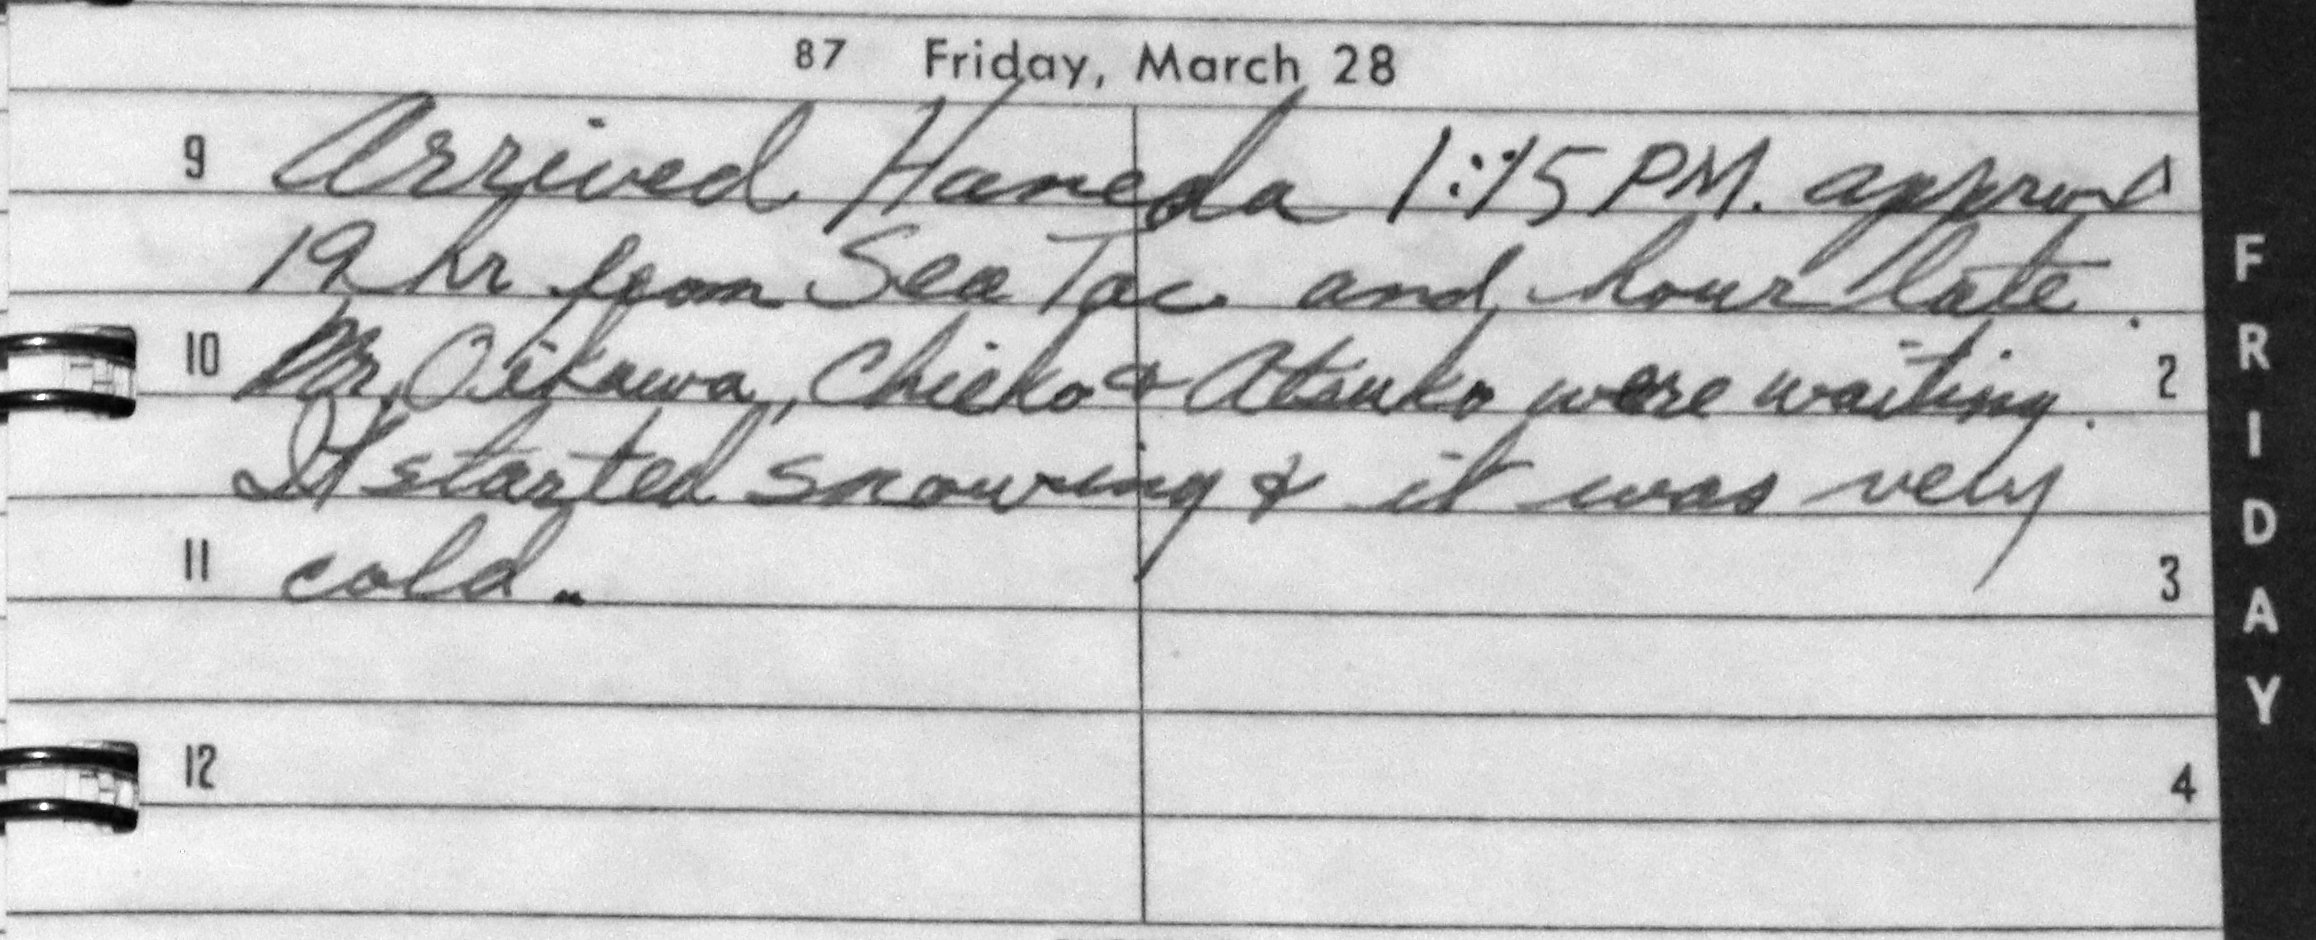 87 Friday, March 28
9 Arrived Haneda 1:15 PM. approx 1
19 hr from Sea Tac and hour late.
10 Mr. Oikawa, Chieko & Atsuko were waiting. 2
It started snowing & it was very
11 cold. 3
12 4
FRIDAY